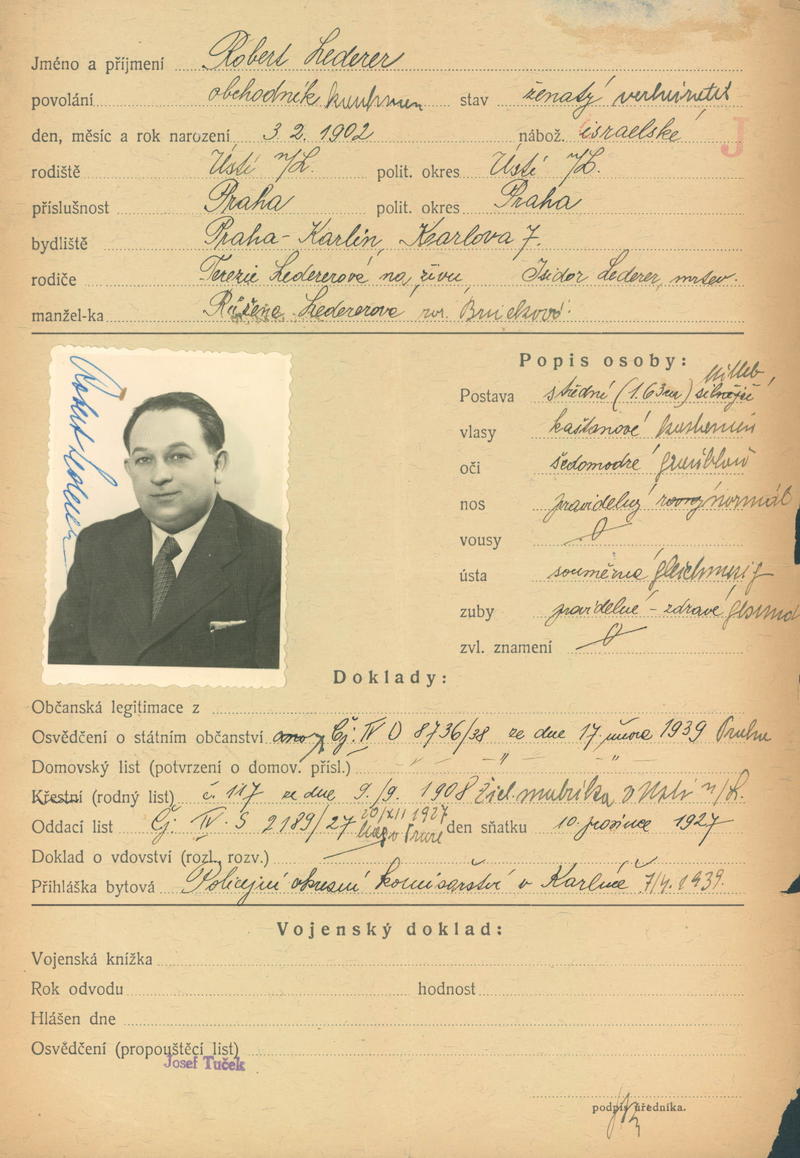 Jméno a příjmení Robert Lederer
povolání obchodník kaufman stav ženatý verheiratet
den, měsíc a rok narození 3. 2. 1902 nábož. israelské J
rodiště Ústí n/L. polit. okres Ústí n/L.
příslušnost Praha polit. okres Praha
bydliště Praha-Karlín, Karlova 7.
rodiče Terezie Ledererová na živu, Isidor Lederer, mrtev.
manžel-ka Růžena Ledererová roz.
Robert Lederer
Popis osoby:
Postava střední (1.63cm) silnější
vlasy kaštanové
oči šedomodré graublau
nos pravidelný rovný normal
vousy
ústa souměrná gleichmäsig
zuby pravidelné - zdravé gesund
zvl. znamení
Doklady:
Občanská legitimace z
Osvědčení o státním občanství ano Čj. IV O 8736/38 ze dne 17. února 1939 Praha
Domovský list (potvrzení o domov. přísl.) " "
Křestní (rodný list) č. 117 ze dne 9./9. 1908 Žid. matrika v Ústí n/L.
Oddací list Čj. IV. S 2189/27 20/XII 1927 den sňatku 10. prosince 1927
Doklad o vdovství (rozl., rozv.)
Přihláška bytová Policejní okresní komisařství v Karlíně 7/4. 1939.
Vojenský doklad:
Vojenská knížka
Rok odvodu hodnost
Hlášen dne
Osvědčení (propouštěcí list)
Josef Tuček
podpis úředníka.